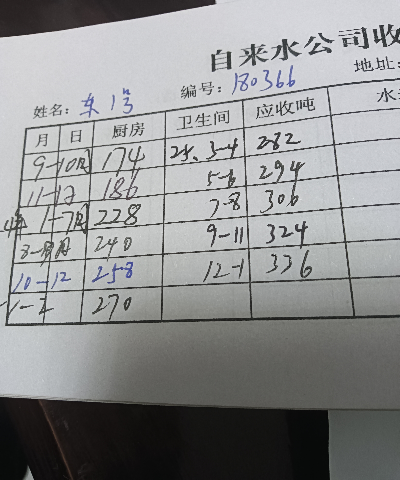 自来水公司收
姓名: 东1号 编号: 180366 地址:
月 日 厨房 卫生间 应收吨 水
9-10月 174 25. 3-4 282
11-12 186 5-6 294
1-7月 228 7-8 306
8-9月 240 9-11 324
10-12 258 12-1 336
1-2 270